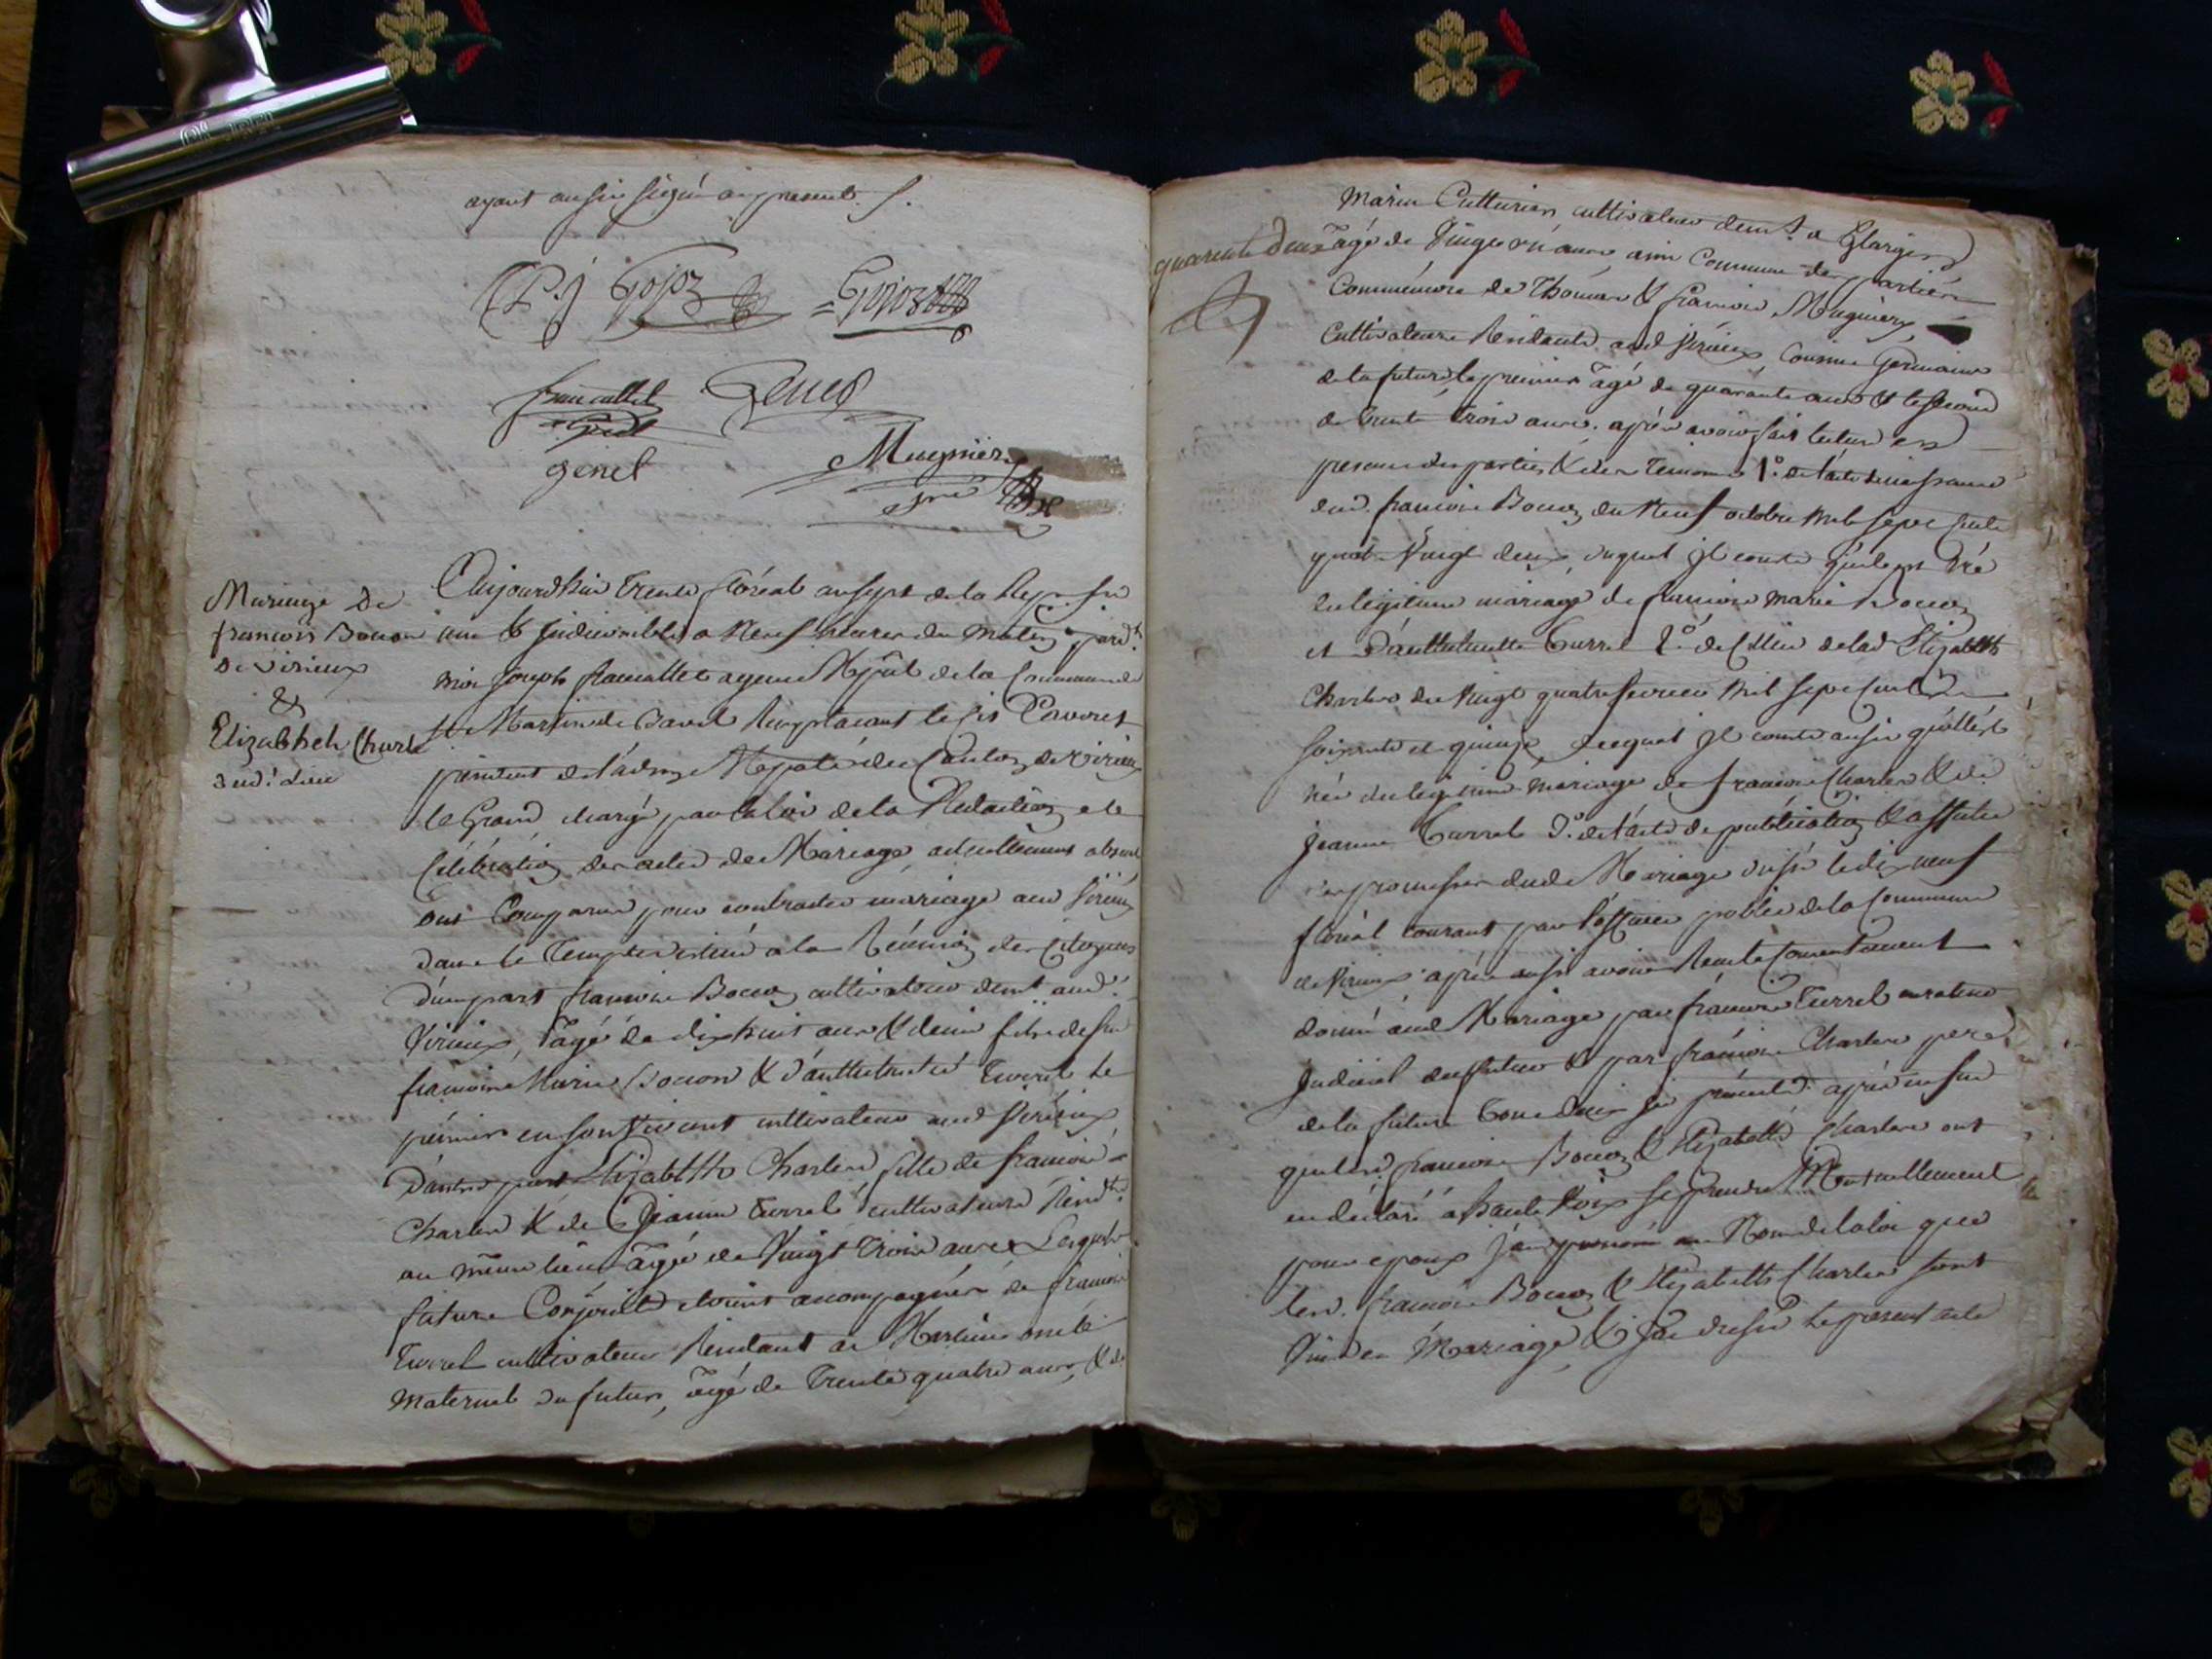 ayant aussi signé au present. /.
genet
Mugnier
Mariage de
francois Bocon
de virieux
&
Elizabheh Charle
dud. Lieu
Aujourdhui trente floréal an sept de la Rep. fse
une & indivisible a neuf heures du matin, pard.t
moi joseph agent Mpál de la Commune de
st Martin de Bavel Remplacant le cit
president de l'adm.on Mpále du Canton de virieux
le Grand chargé par la loi de la Rédaction et
Célébration des actes de Mariage actuellement absent
ont Comparu pour contracter mariage aud Virieux
dans le Temple destiné a la Réunion des citoyens
d'une part francois Bocon cultivateur demt aud.
Virieux, agé de dix huit ans & demi fils de feu
francois Marie Bocon & d'anthelmette Turrel le
premier en son vivant cultivateur aud Virieux
d'autre part Elizabeth Charlin fille de francois
Charlin & de Jeanne Turrel cultivateurs Resid.ts
au même lieu agée de Vingt trois ans Lesquels
futurs Conjoints étoient accompagnés de francois
Turrel cultivateur Residant a oncle
maternel du futur, agé de trente quatre ans, & de
Marin cultivateur demt. a
quarante deux
agé de Vingt ans ami Commun des parties
Comme encore de Thomas & francois Mugnier
Cultivateurs Residants aud Virieux Cousins Germains
de la future, le premier agé de quarante ans & le second
de trente trois ans. après avoir fait lecture en
presence des parties & des temoins 1.° de l'acte de naissance
dud. francois Bocon du neuf octobre mil sept cent
quatre Vingt deux, duquel il conste qu'il est Né
du légitime mariage de francois marie Bocon
et d'anthelmette Turrel 2.° de Celui de lad Elizabeth
Charlin du Vingt quatre fevrier mil sept cent
soixante et quinze, duquel il conste aussi qu'elle est
née du legitime mariage de francois Charlin & de
Jeanne Turrel 3.° de l'acte de publication & affiche
des promesses dud. Mariage dressé le dix neuf
floréal courant par l'officier public de la Commune
de Virieux après aussi avoir Reçu le Consentement
donné aud Mariage par francois Turrel curateur
Judiciel du futur & par francois Charlin pere
de la future tous deux ici présents. après en fin
que lesd. francois Bocon & Elizabeth Charlin ont
eu déclaré a haute Voix se prendre Mutuellement
pour epoux j'ai prononcé au Nom de la loi que
lesd. francois Bocon & Elizabeth Charlin sont
Unis en Mariage & j'ai dressé le present acte